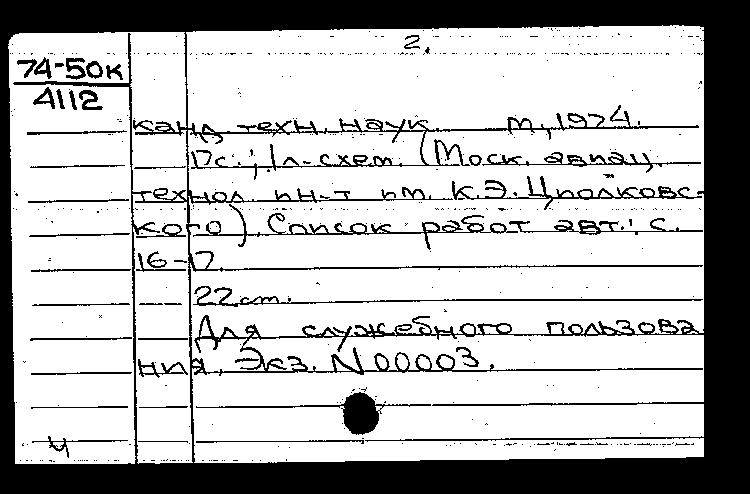 2.
74-50к
4112
канд. техн. наук М, 1974.
17с.; 1л. схем. (Моск. авиац.
технол. ин-т им. К.Э. Циолковс-
кого). Список работ авт.: с.
16-17.
22см.
Для служебного пользова
ния. Экз. N 00003.
ч